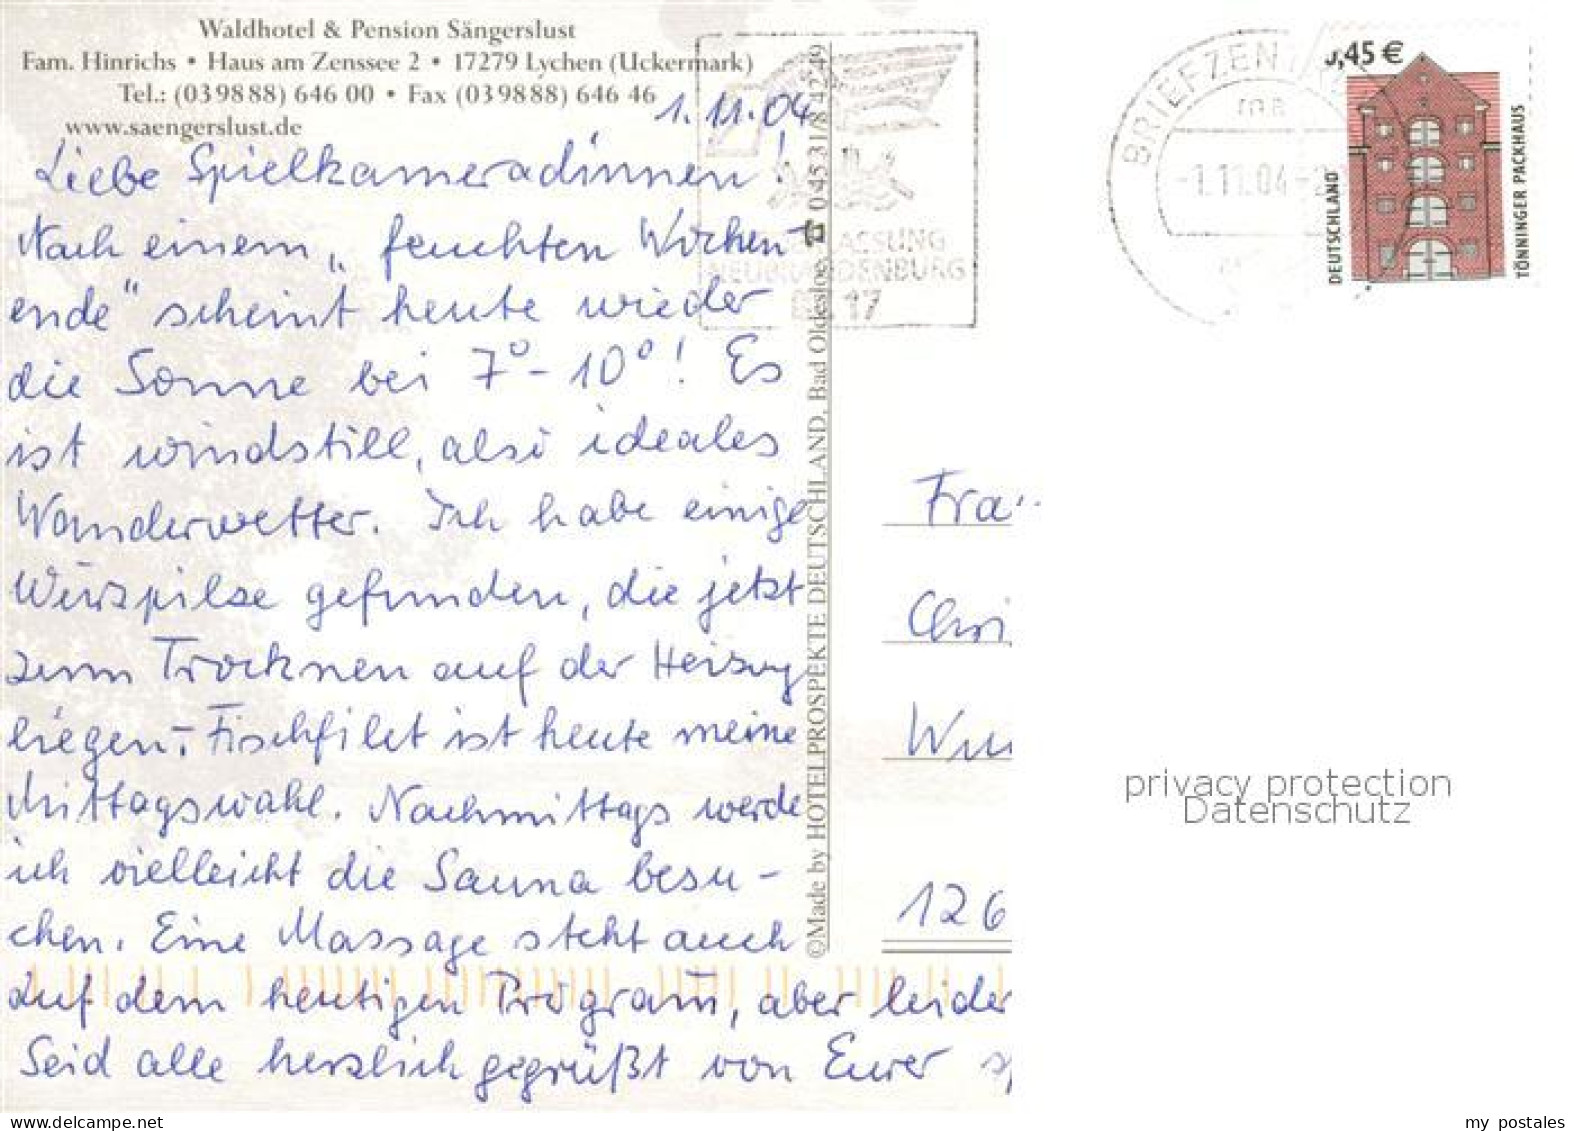 Waldhotel & Pension Sängerslust
Fam. Hinrichs • Haus am Zenssee 2 • 17279 Lychen (Uckermark)
Tel.: (039888) 646 00 • Fax (039888) 646 46
www.saengerslust.de
1.11.04
Liebe Spielkameradinnen!
Nach einem „feuchten Wochen-
ende" scheint heute wieder
die Sonne bei 7° - 10°! Es
ist windstill, also ideales
Wanderwetter. Ich habe einige
Würzpilze gefunden, die jetzt
zum Trocknen auf der Heizung
liegen. Fischfilet ist heute meine
Mittagswahl. Nachmittags werde
ich vielleicht die Sauna besu-
chen. Eine Massage steht auch
auf dem heutigen Program, aber leider
Seid alle herzlich gegrüßt von Eurer
©Made by HOTELPROSPEKTE DEUTSCHLAND, Bad Oldesloe, ☎ 0 45 31/8 42 49
NEUBRANDENBURG
17
BRIEFZEN
-1.11.04-
0,45 €
DEUTSCHLAND
TÖNNINGER PACKHAUS
Fra
Chri
Wu
126
privacy protection
Datenschutz
www.delcampe.net
my_postales